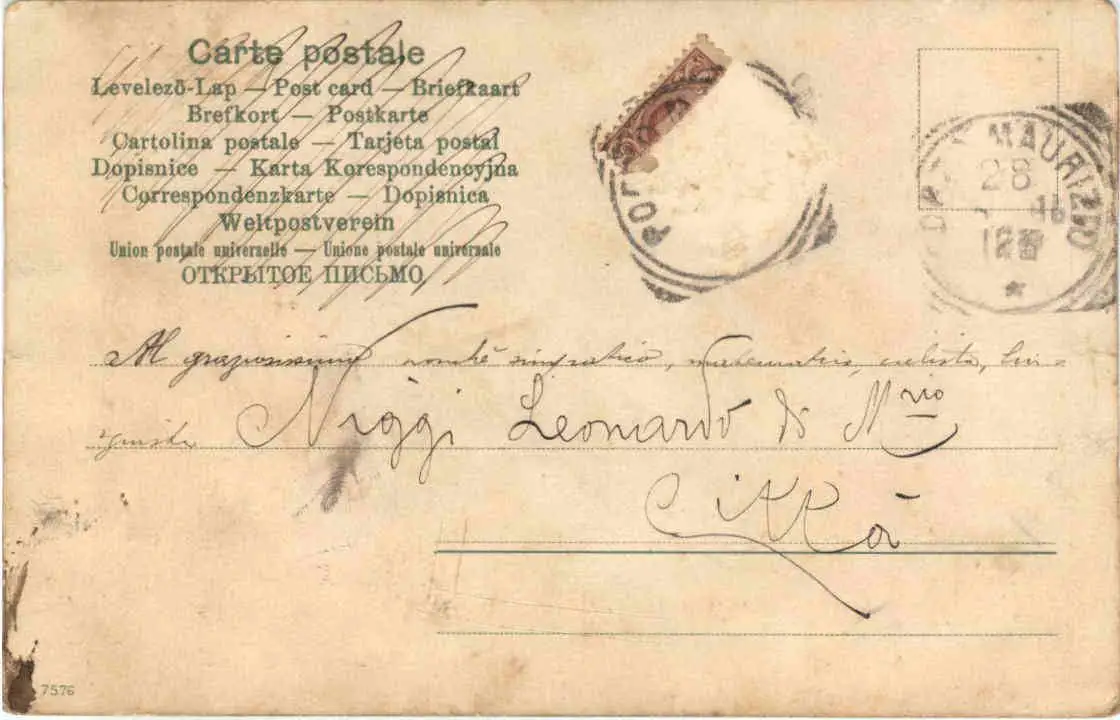 Carte postale
Levelező-Lap — Post card — Briefkaart
Brefkort — Postkarte
Cartolina postale — Tarjeta postal
Dopisnice — Karta Korespondencyjna
Correspondenzkarte — Dopisnica
Weltpostverein
Union postale universelle — Unione postale universale
ОТКРЫТОЕ ПИСЬМО
MAURIZIO
28
Al graziosissimo nonchè simpatico, matematico, ciclista, lin-
guista Niggi Leonardo di Mrio
Città
7576